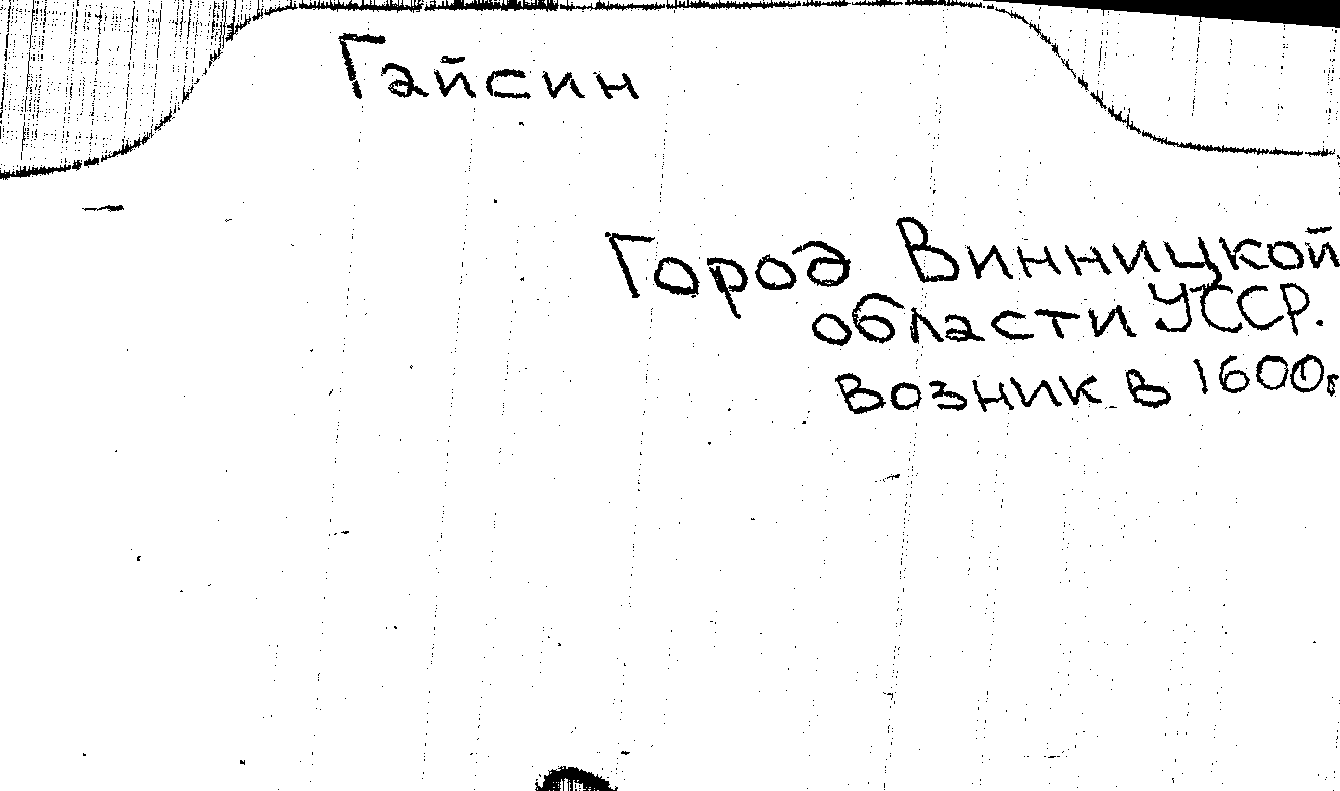 Гайсин
Город Винницкой
области УССР.
возник в 1600г